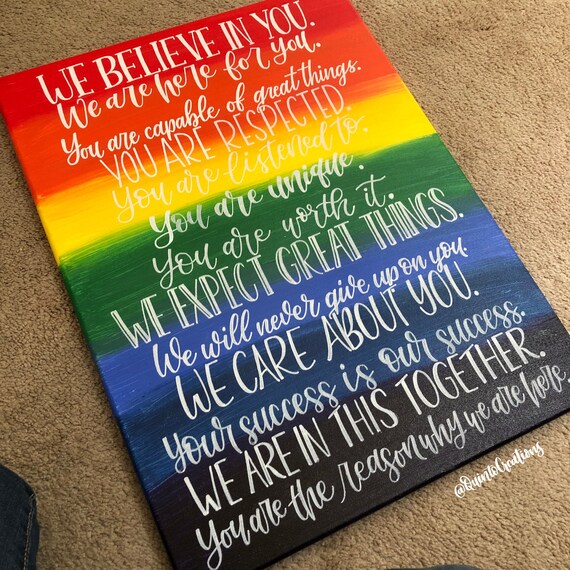 WE BELIEVE IN YOU.
We are here for you.
You are capable of great things.
YOU ARE RESPECTED.
You are listened to.
You are unique.
You are worth it.
WE EXPECT GREAT THINGS.
We will never give up on you.
WE CARE ABOUT YOU.
Your success is our success.
WE ARE IN THIS TOGETHER.
You are the reason why we are here.
@QuintoCreations